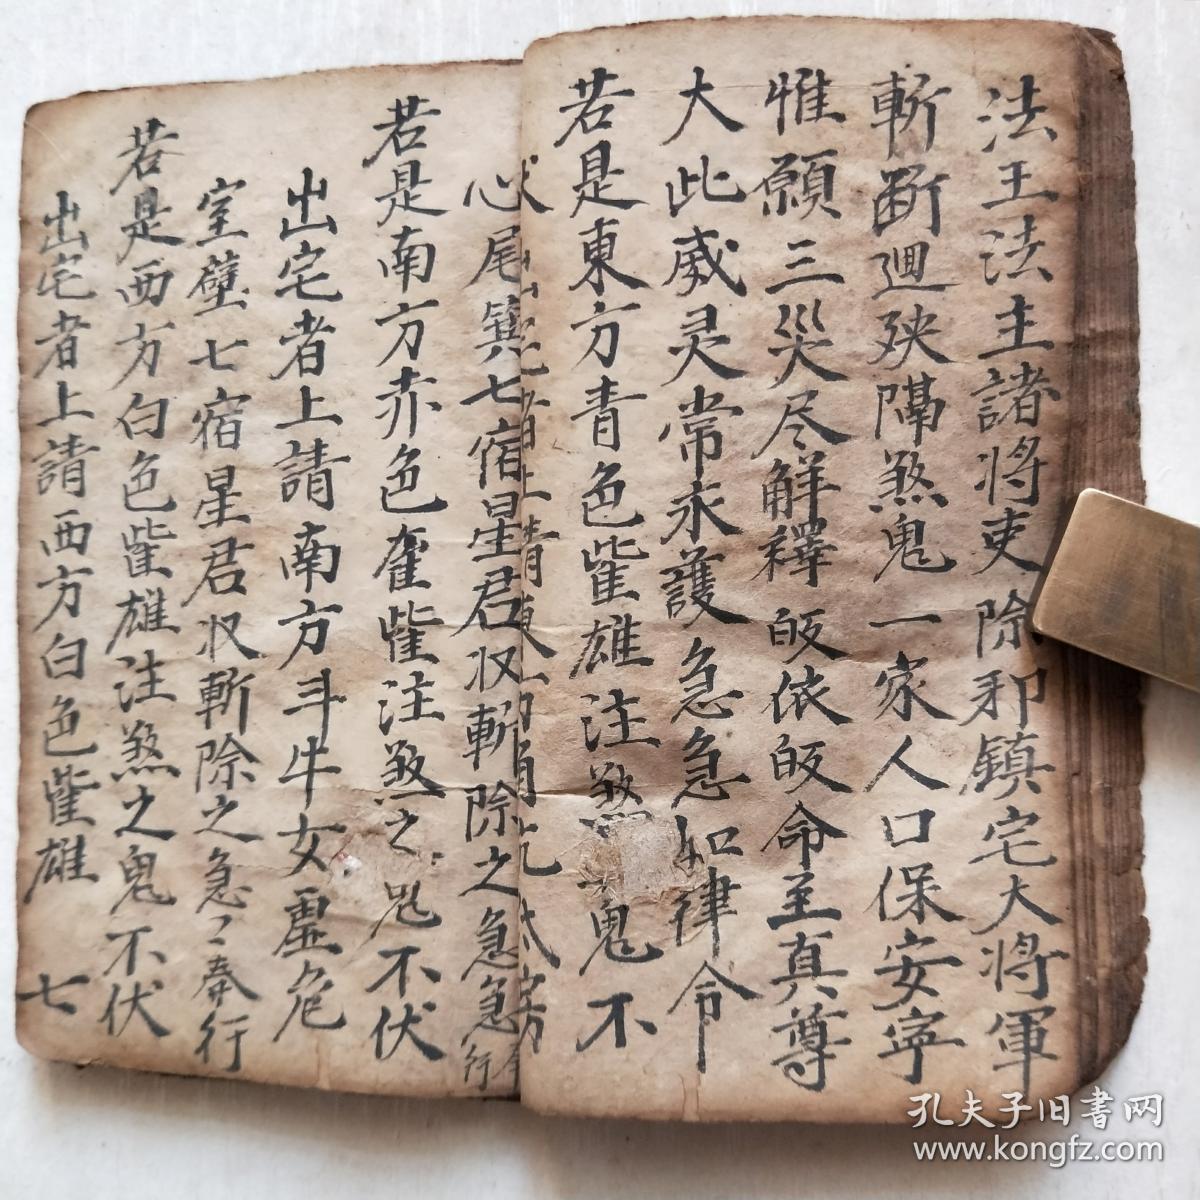 法王法主諸將吏除邪鎮宅大將軍
斬断迴殃隔煞鬼一家人口保安寧
惟願三災尽解釋皈依皈命至真尊
大此威灵常永護急急如律令
若是東方青色䧳雄注煞鬼不
心尾箕七宿星君収斬除之急急行
若是南方赤色雄䧳注煞之鬼不伏
出宅者上請南方斗牛女虛危
室壁七宿星君収斬除之急々奉行
若是西方白色䧳雄注煞之鬼不伏
出宅者上請西方白色䧳雄 七
孔夫子旧书网
www.kongfz.com